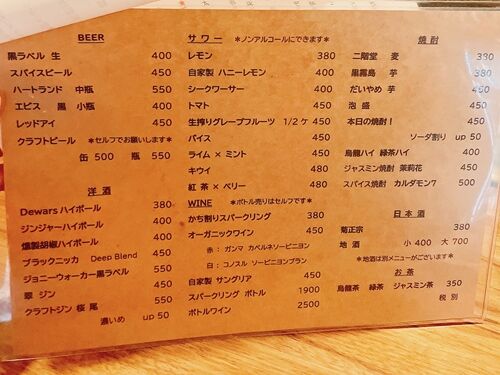 BEER
黒ラベル 生 400
スパイスビール 450
ハートランド 中瓶 550
エビス 黒 小瓶 400
レッドアイ 450
クラフトビール ＊セルフでお願いします＊
缶 500 瓶 550
洋 酒
Dewars ハイボール 380
ジンジャーハイボール 400
燻製胡椒ハイボール 400
ブラックニッカ Deep Blend 450
ジョニーウォーカー黒ラベル 550
翠 ジン 450
クラフトジン 桜 尾 550
濃いめ up 50
サ ワ ー ＊ノンアルコールにできます＊
レモン 380
自家製 ハニーレモン 400
シークワーサー 400
トマト 450
生搾りグレープフルーツ 1/2ケ 450
バイス 450
ライム × ミント 450
キウイ 480
紅 茶 × ベリー 480
WINE ＊ボトル売りはセルフです＊
かち割りスパークリング 380
オーガニックワイン 450
赤 : ガンマ カベルネソービニヨン
白 : コノスル ソービニヨンブラン
自家製 サングリア 450
スパークリング ボトル 1900
ボトルワイン 2500
焼 酎
二階堂 麦 380
黒霧島 芋 380
だいやめ 芋 450
泡 盛 450
本日の焼酎！ 450
ソーダ割り up 50
烏龍ハイ 緑茶ハイ 400
ジャスミン焼酎 茉莉花 450
スパイス焼酎 カルダモン7 500
日 本 酒
菊正宗 380
地 酒 小 400 大 700
＊地酒は別メニューがございます＊
お 茶
烏龍茶 緑茶 ジャスミン茶 350
税 別